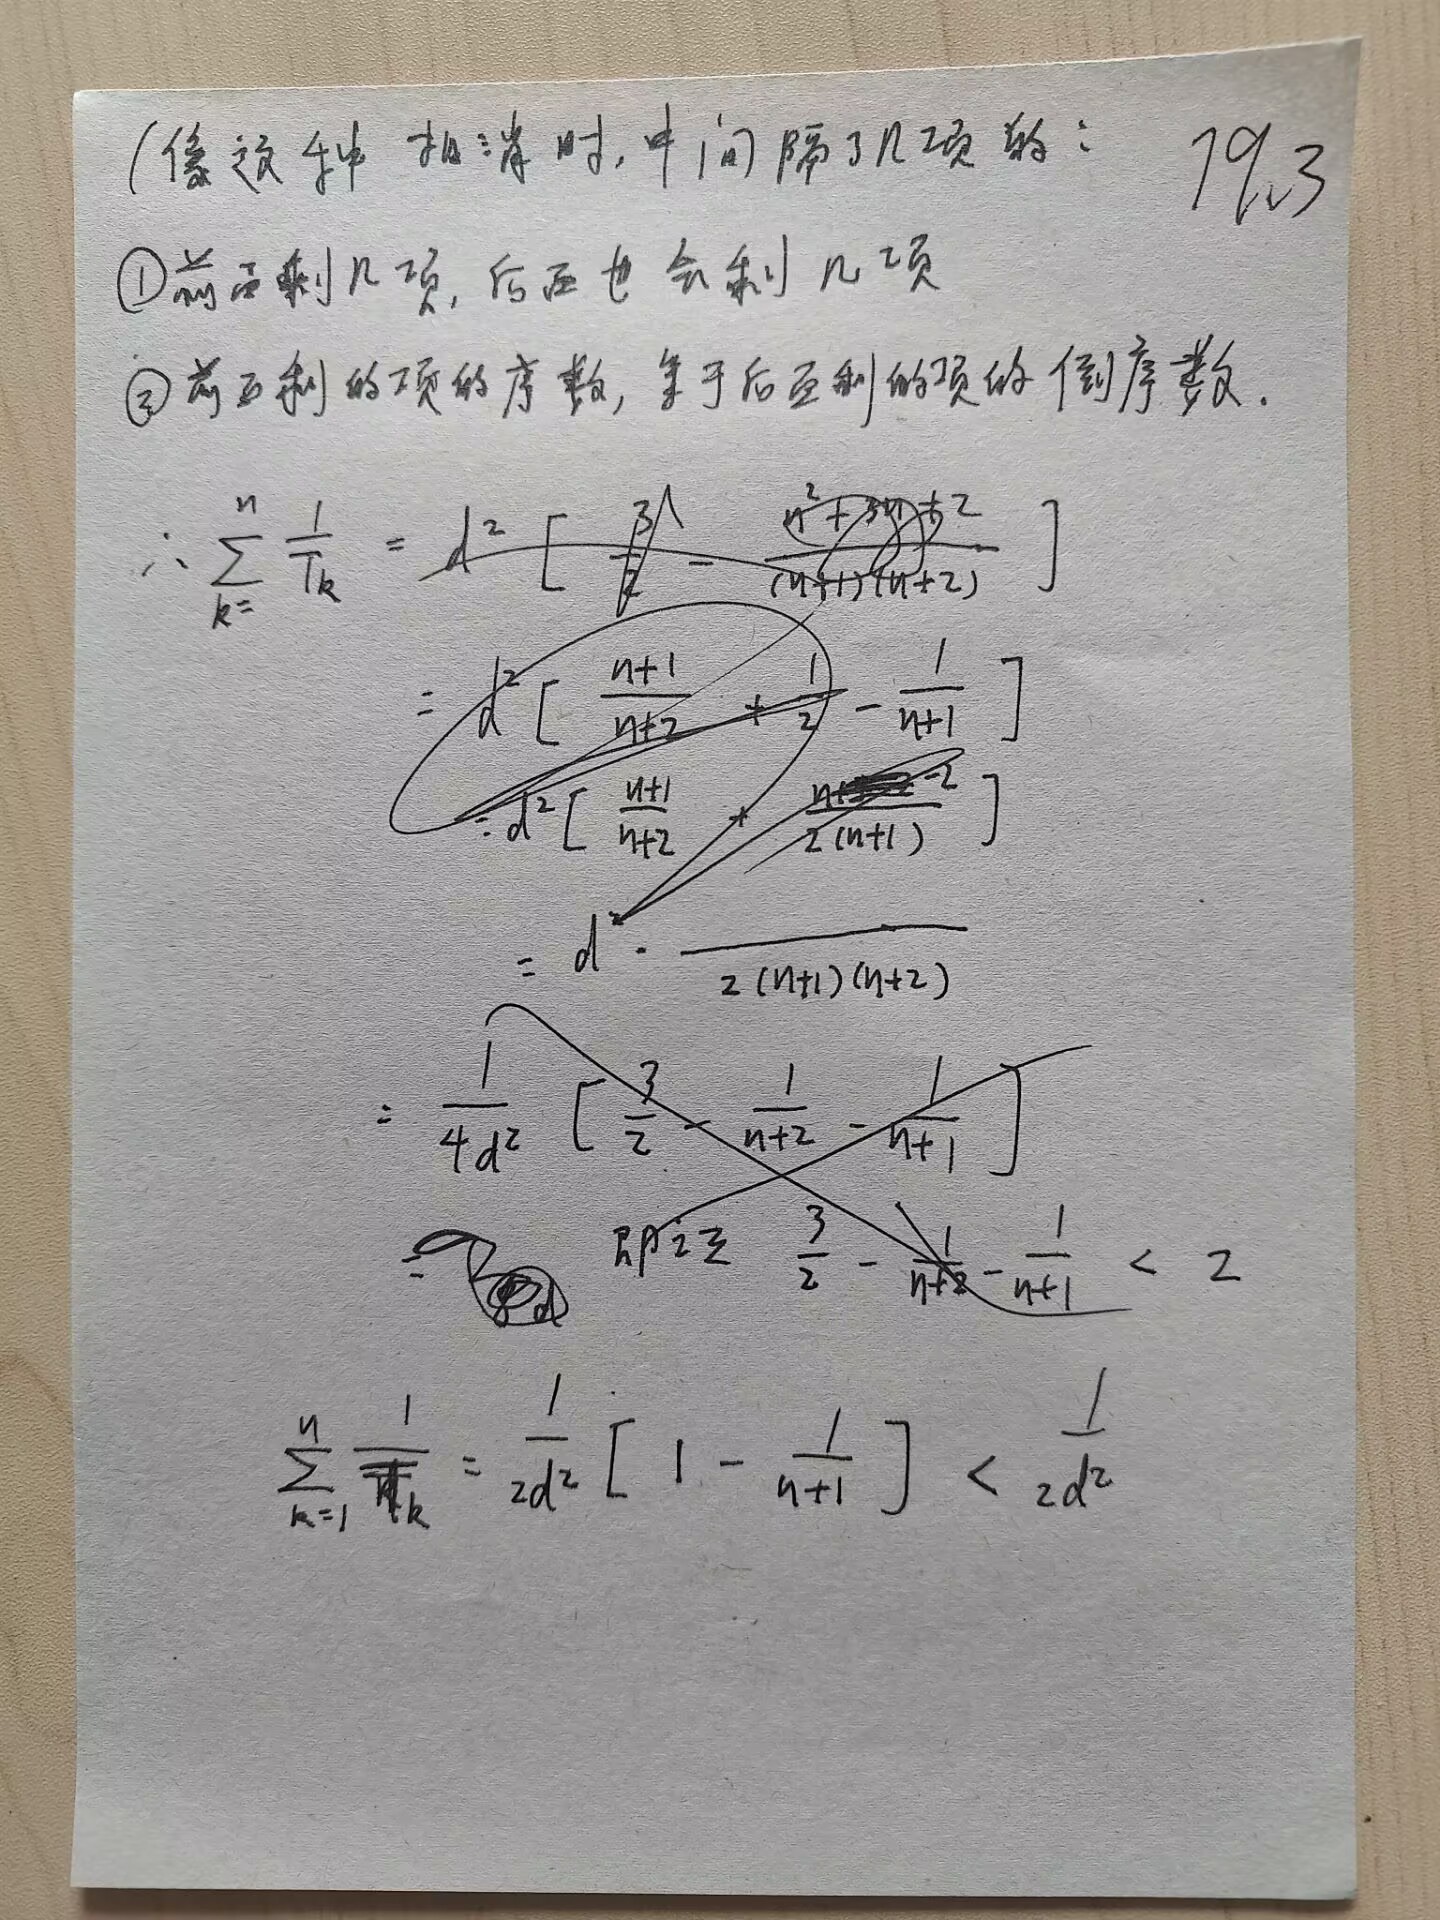 (像这种相消时,中间隔了几项的:
19.3
①前面剩几项,后面也会剩几项
②前面剩的项的序数,等于后面剩的项的倒序数.
∴ ∑_{k=}^{n} 1/T_k = d² [ 3/2 - (n²+3n+2)/((n+1)(n+2)) ]
= d² [ (n+1)/(n+2) + 1/2 - 1/(n+1) ]
= d² [ (n+1)/(n+2) + /(2(n+1)) ]
= d² · /(2(n+1)(n+2))
= 1/(4d²) [ 3/2 - 1/(n+2) - 1/(n+1) ]
= 即证 3/2 - 1/(n+2) - 1/(n+1) < 2
∑_{k=1}^{n} 1/T_k = 1/(2d²) [ 1 - 1/(n+1) ] < 1/(2d²)